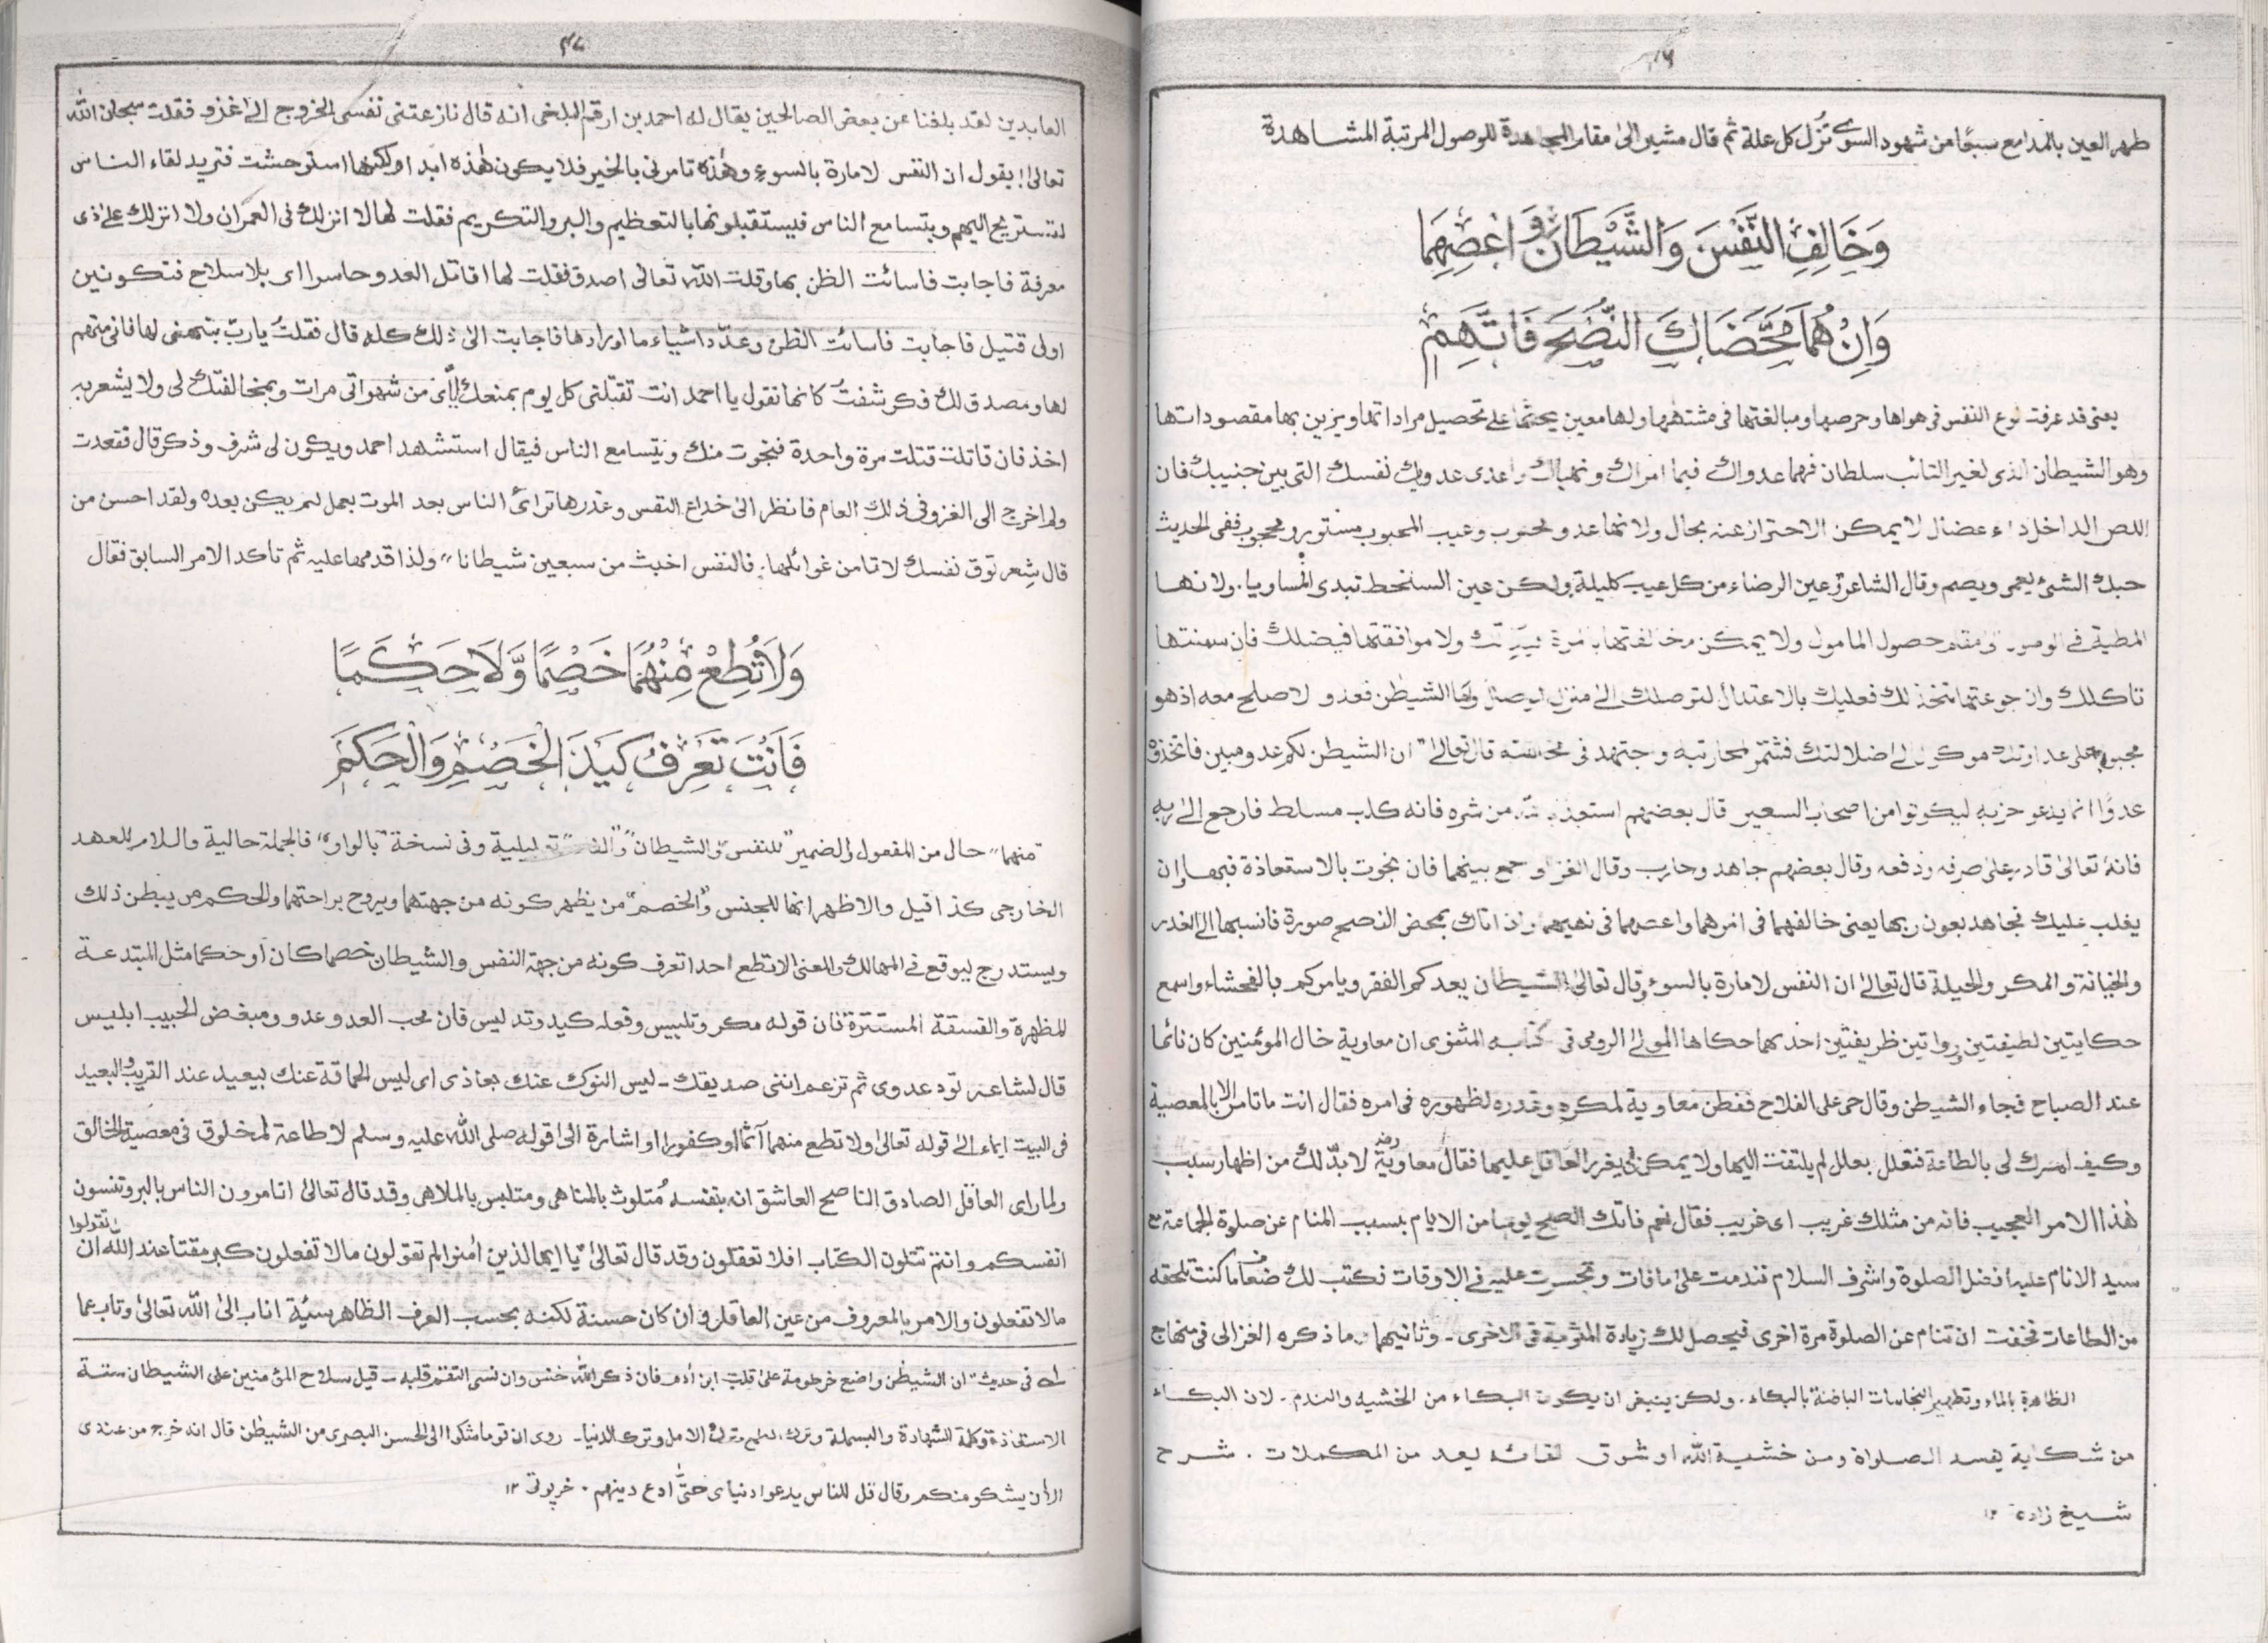 طهر العين بالمدامع سبعًا من شهود السوى تزل كل علة ثم قال مشير الى مقام المجاهدة للوصول المرتبة المشاهدة
وَخَالِفِ النَّفْسَ وَالشَّيْطَانَ وَاعْصِهِمَا
وَاِنْ هُمَا مَحَّضَاكَ النُّصْحَ فَاتَّهِمِ
يعنى قد عرفت نوع النفس فى هواها وحرصها ومبالغتها فى مشتهاها ولها معين يحثها على تحصيل مراداتها ويزين بها مقصوداتها
وهو الشيطان الذى لغير التائب سلطان فهما عدواك فيما امراك ونهياك واعدى عدويك نفسك التى بين جنبيك فان
اللص الداخل داء عضال لا يمكن الاحتراز عنه بحال ولانها عدو محبوب وعيب المحبوب مستور ومحجوب ففى الحديث
حبك الشئ يعمى ويصم وقال الشاعر وعين الرضاء من كل عيب كليلة ولكن عين السخط تبدى المساويا. ولانها
المطية فى الوصول ومقام حصول المامول ولا يمكن مخالفتها ولا موافقتها فيضلك فان سمنتها
تاكلك وان جوعتها تخذلك فعليك بالاعتدال لتوصلك الى منزل الوصال واما الشيطن فعدو لا صلح معه اذ هو
مجبول على عداوتك موكول الى اضلالتك فشمر لمحاربته واجتهد فى مخالفته قال تعالى "ان الشيطن لكم عدو مبين فاتخذوه
عدوًّا انما يدعو حزبه ليكونوا من اصحاب السعير قال بعضهم استعذ بالله من شره فانه كلب مسلط فارجع الى ربه
فانه تعالى قادر على صرفه ودفعه وقال بعضهم جاهد وحارب وقال الغزالى وجمع بينهما فان نجوت بالاستعاذة فبها وان
يغلب عليك فجاهد بعون ربها يعنى خالفهما فى امرهما واعصهما فى نهيهما وان اتاك بمحض النصح صورة فانسبها الى الغدر
والخيانة والمكر والحيلة قال تعالى ان النفس لامارة بالسوء وقال تعالى الشيطان يعدكم الفقر ويامركم بالفحشاء واسمع
حكايتين لطيفتين ورواتين ظريفتين احدهما حكاها المولى الرومى فى كتابه المثنوى ان معاوية خال المومنين كان نائما
عند الصباح فجاء الشيطن وقال حى على الفلاح ففطن معاوية لمكره وغدره لظهوره فى امره فقال انت ما تامر الا بالمعصية
وكيف امرك لى بالطاعة فتعلل بعلل لم يلتفت اليها ولا يمكن ان يغرر العاقل عليها فقال معاوية رضـ لا بدّ لك من اظهار سبب
هذا الامر العجيب فانه من مثلك غريب اى غريب فقال نعم فاتك الصبح يوما من الايام بسبب المنام عن صلوة الجماعة مع
سيد الانام عليه افضل الصلوة واشرف السلام فندمت على مافات وتحسرت عليه فى الاوقات فكتب لك ضعاف ما كنت تلحقه
من الطاعات فخفت ان تنام عن الصلوة مرة اخرى فيحصل لك زيادة المثوبة فى الاخرى - وثانيهما ما ذكره الغزالى فى منهاج
الظاهرة بالماء وتطهير النجاسات الباطنة بالبكاء. ولكن ينبغى ان يكون البكاء من الخشية والندم. لان البكاء
من شكاية يفسد الصلواة ومن خشية الله او شوق لقائه يعد من المكملات. شرح
شيخ زاده ١٢
العابدين لقد بلغنا عن بعض الصالحين يقال له احمد بن ارقم البلخى انه قال نازعتنى نفسى الخروج الى غزو فقلت سبحان الله
تعالى! يقول ان النفس لامارة بالسوء وهذه تامرنى بالخير فلا يكون هذه ابدا ولكنها استوحشت فتريد لقاء الناس
لتستريح اليهم ويتسامع الناس فيستقبلونها بالتعظيم والبر والتكريم فقلت لها لا انزلك فى العمران ولا انزلك على ذى
معرفة فاجابت فاسائت الظن بها وقلت الله تعالى اصدق فقلت لها اقاتل العدو حاسرا اى بلا سلاح فتكونين
اولى قتيل فاجابت فاسائت الظن وعدّد اشياء ما اورادها فاجابت الى ذلك كله قال فقلتُ يا ربّ بنبهنى لها فانى متهم
لها ومصدق لك فكوشفتُ كانها تقول يا احمد انت تقتلنى كل يوم بمنعك ايّاى من شهواتى مرات وبمخالفتك لى ولا يشعر به
احد فان قاتلت قتلت مرة واحدة فنجوت منك ويتسامع الناس فيقال استشهد احمد ويكون لى شرف وذكر قال فقعدت
ولم اخرج الى الغزو فى ذلك العام فانظر الى خداع النفس وغدرها ترائ الناس بعد الموت بعمل لم يكن بعده ولقد احسن من
قال شعر توق نفسك لا تامن غوائلها. فالنفس اخبث من سبعين شيطانا" ولذا قدمها عليه ثم تاكد الامر السابق فقال
وَلَا تُطِعْ مِنْهُمَا خَصْمًا وَّلَا حَكَمًا
فَاَنْتَ تَعْرِفُ كَيْدَ الْخَصْمِ وَالْحَكَمِ
"منهما" حال من المفعول والضمير "للنفس والشيطان" و"الفاء" تعليلية وفى نسخة "بالواو" فالجملة حالية واللام للعهد
الخارجى كذا قيل والاظهر انها للجنس و"الخصم" من يظهر كونه من جهتهما ويروح براحتهما والحكم من يبطن ذلك
ويستدرج ليوقع فى المهالك والمعنى لا تطع احدا تعرف كونه من جهة النفس والشيطان خصما كان او حكما مثل المبتدعة
المظهرة والفسقة المستترة فان قوله مكر وتلبيس وفعله كيد وتدليس فان محب العدو عدو ومبغض الحبيب ابليس
قال لشاعر تود عدوى ثم تزعم اننى صديقك - ليس النوك عنك بعاذى اى ليس الحماقة عنك ببعيد عند القريب والبعيد
فى البيت ايماء الى قوله تعالى ولا تطع منهما آثما او كفورا او اشارة الى قوله صلى الله عليه وسلم لا طاعة لمخلوق فى معصية الخالق
ولما راى العاقل الصادق الناصح العاشق انه بنفسه مُتلوث بالمناهى ومتلبس بالملاهى وقد قال تعالى اتامرون الناس بالبر وتنسون
انفسكم وانتم تتلون الكتاب افلا تعقلون وقد قال تعالى "يا ايها الذين امنوا لم تقولون مالا تفعلون كبر مقتا عند الله ان تقولوا
مالا تفعلون والامر بالمعروف من عين العاقل وان كان حسنة لكنه بحسب العرف الظاهر سيّة اناب الى الله تعالى وتاب عما
له فى حديث "ان الشيطن واضع خرطومة على قلب ابن ادم فان ذكر الله خنس وان نسى التقم قلبه - قيل سلاح المؤمنين على الشيطان ستة
الاستعاذة وكلمة الشهادة والبسملة وترك الطمع وترك الامل وترك الدنيا - روى ان قوما شكوا الى الحسن البصرى من الشيطن قال انه خرج من عندى
الآن يشكو منكم وقال قل للناس يدعوا دنياى حتّى ادع دينهم. خرپوتى ١٢